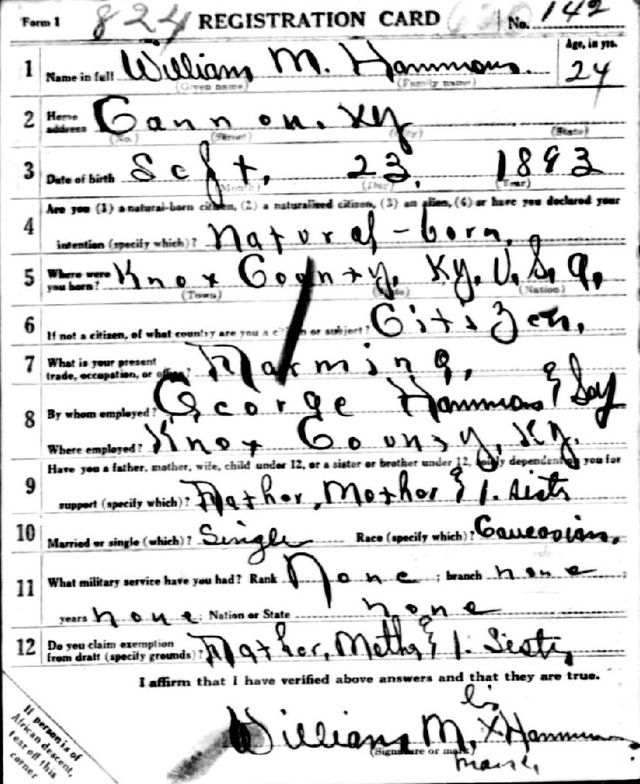 Form 1 824 REGISTRATION CARD No. 142
1 Name in full William M. Hammons. Age, in yrs. 24
(Given name) (Family name)
2 Home address Cannon. Ky
(No.) (Street) (City) (State)
3 Date of birth Sept. 23, 1893
(Month) (Day) (Year)
4 Are you (1) a natural-born citizen, (2) a naturalized citizen, (3) an alien, (4) or have you declared your
intention (specify which)? Natural-born.
5 Where were you born? Knox County, Ky, U, S, a,
(Town) (State) (Nation)
6 If not a citizen, of what country are you a citizen or subject? Citizen,
7 What is your present trade, occupation, or office? Farming,
8 By whom employed? George Hammons &
Where employed? Knox County, Ky.
9 Have you a father, mother, wife, child under 12, or a sister or brother under 12, solely dependent on you for
support (specify which)? Father, Mother & 1. Sister
10 Married or single (which)? Single Race (specify which)? Caucasian,
11 What military service have you had? Rank None ; branch none ;
years none ; Nation or State none
12 Do you claim exemption from draft (specify grounds)? Father, Mother & 1. Sister,
I affirm that I have verified above answers and that they are true.
his
William M. X Hammons
(Signature or mark)
mark
If person is of
African descent,
tear off this
corner.